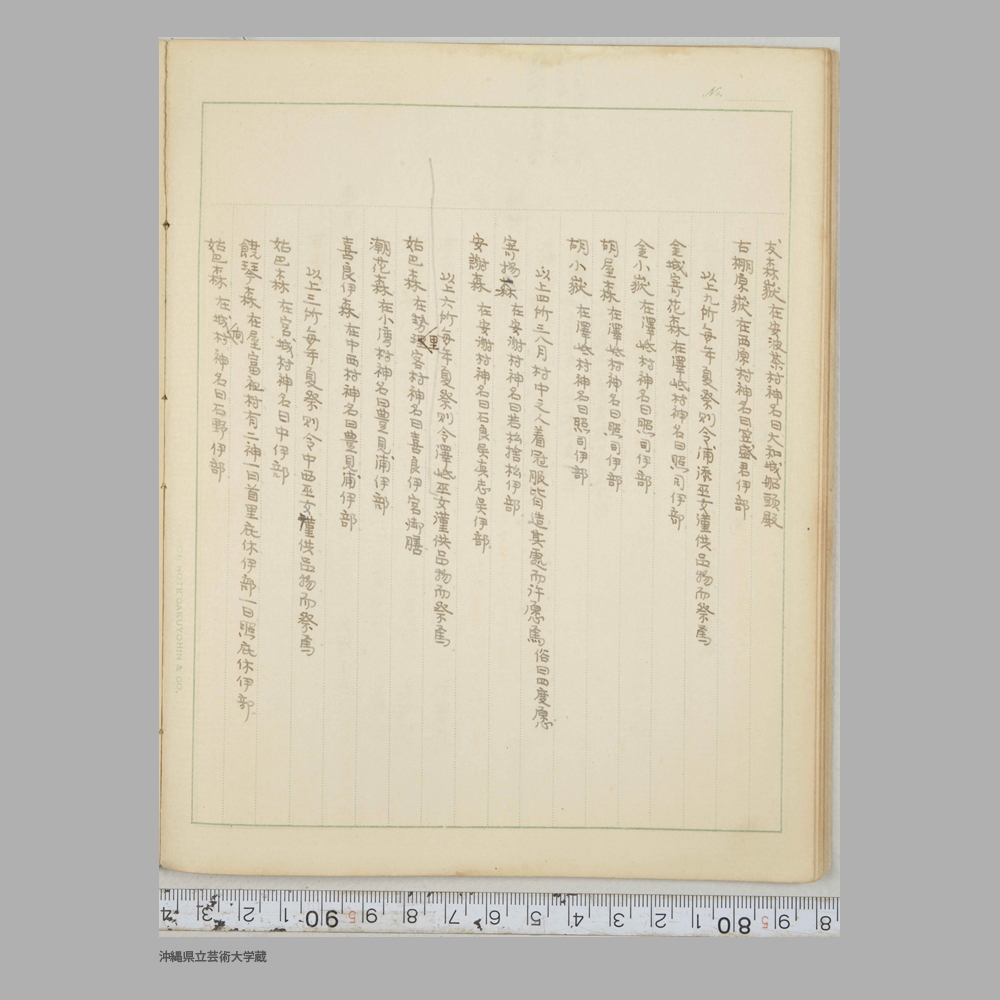 友森嶽 在安波茶村神名曰大和城船頭殿
右棚原嶽 在西原村神名曰宜盛君伊部
以上九所毎年夏祭則令浦添巫女謹供品物而祭焉
金城寄花森 在澤岻村神名曰照司伊部
金小嶽 在澤岻村神名曰照司伊部
胡屋森 在澤岻村神名曰照司伊部
胡小嶽 在澤岻村神名曰照司伊部
以上四所三八月村中之人着冠服皆造其處而許愿焉俗曰四度愿
寄揚森 在安謝村神名曰若松捨松伊部
安謝森 在安謝村神名曰石良吳真志吳伊部
以上六所毎年夏祭則令澤岻巫女謹供品物而祭焉
姑巴森 在勢理客村神名曰喜良伊宮御膳
潮花森 在小湾村神名曰豊見浦伊部
喜良伊森 在中西村神名曰豊見浦伊部
以上三所毎年夏祭則令中西巫女謹供品物而祭焉
姑巴森 在宮城村神名曰中伊部
饒琴森 在屋富祖村有二神一曰首里庇休伊部一曰照庇休伊部
姑巴森 在城村神名曰石野伊部
No.
NOTE GAKUYOHIN & CO.
4 3 2 1 90 5 9 8 7 6 5 4 3 2 1 80 5 9 8
沖縄県立芸術大学蔵